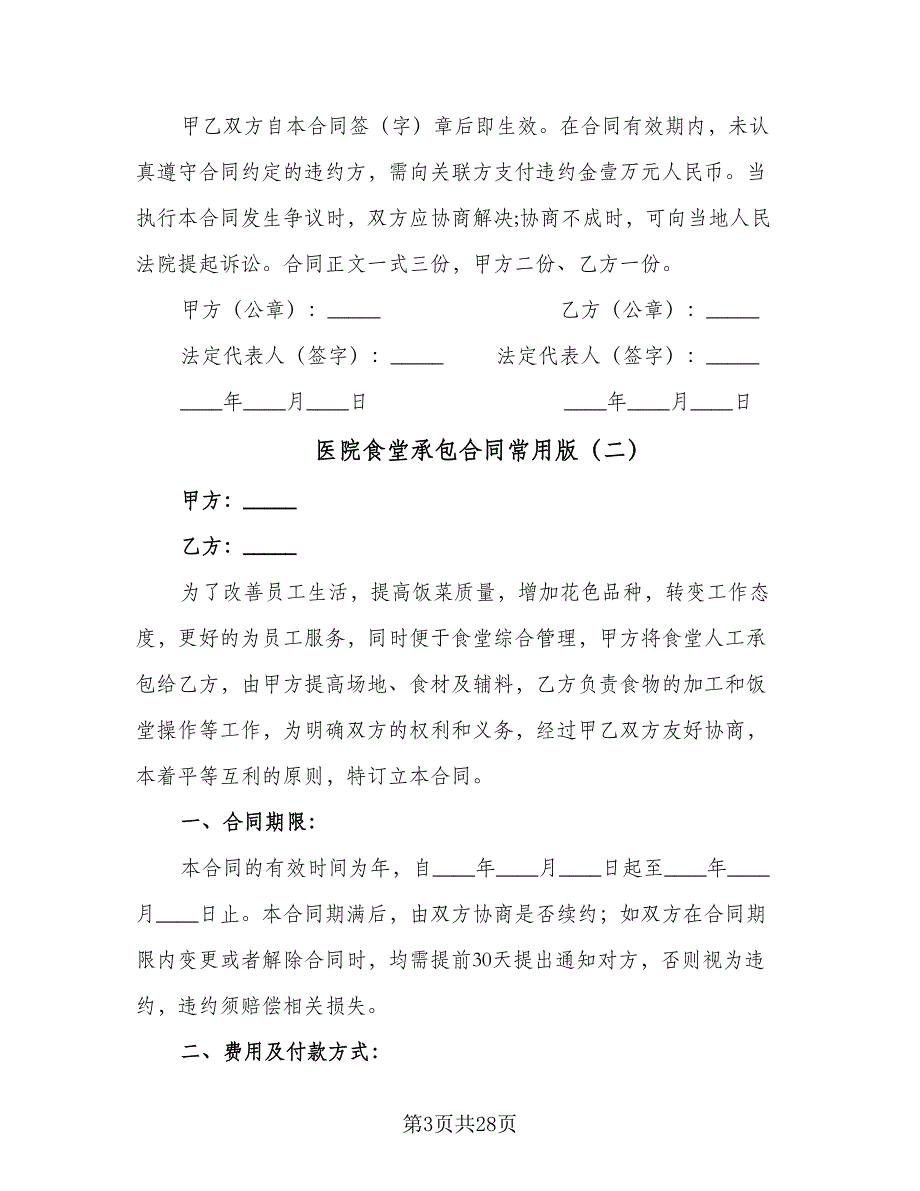 甲乙双方自本合同签（字）章后即生效。在合同有效期内，未认
真遵守合同约定的违约方，需向关联方支付违约金壹万元人民币。当
执行本合同发生争议时，双方应协商解决;协商不成时，可向当地人民
法院提起诉讼。合同正文一式三份，甲方二份、乙方一份。
甲方（公章）：_____ 乙方（公章）：_____
法定代表人（签字）：_____ 法定代表人（签字）：_____
____年____月____日 ____年____月____日
医院食堂承包合同常用版（二）
甲方：_____
乙方：_____
为了改善员工生活，提高饭菜质量，增加花色品种，转变工作态
度，更好的为员工服务，同时便于食堂综合管理，甲方将食堂人工承
包给乙方，由甲方提高场地、食材及辅料，乙方负责食物的加工和饭
堂操作等工作，为明确双方的权利和义务，经过甲乙双方友好协商，
本着平等互利的原则，特订立本合同。
一、合同期限：
本合同的有效时间为年，自____年____月____日起至____年____
月____日止。本合同期满后，由双方协商是否续约；如双方在合同期
限内变更或者解除合同时，均需提前30天提出通知对方，否则视为违
约，违约须赔偿相关损失。
二、费用及付款方式：
第3页共28页